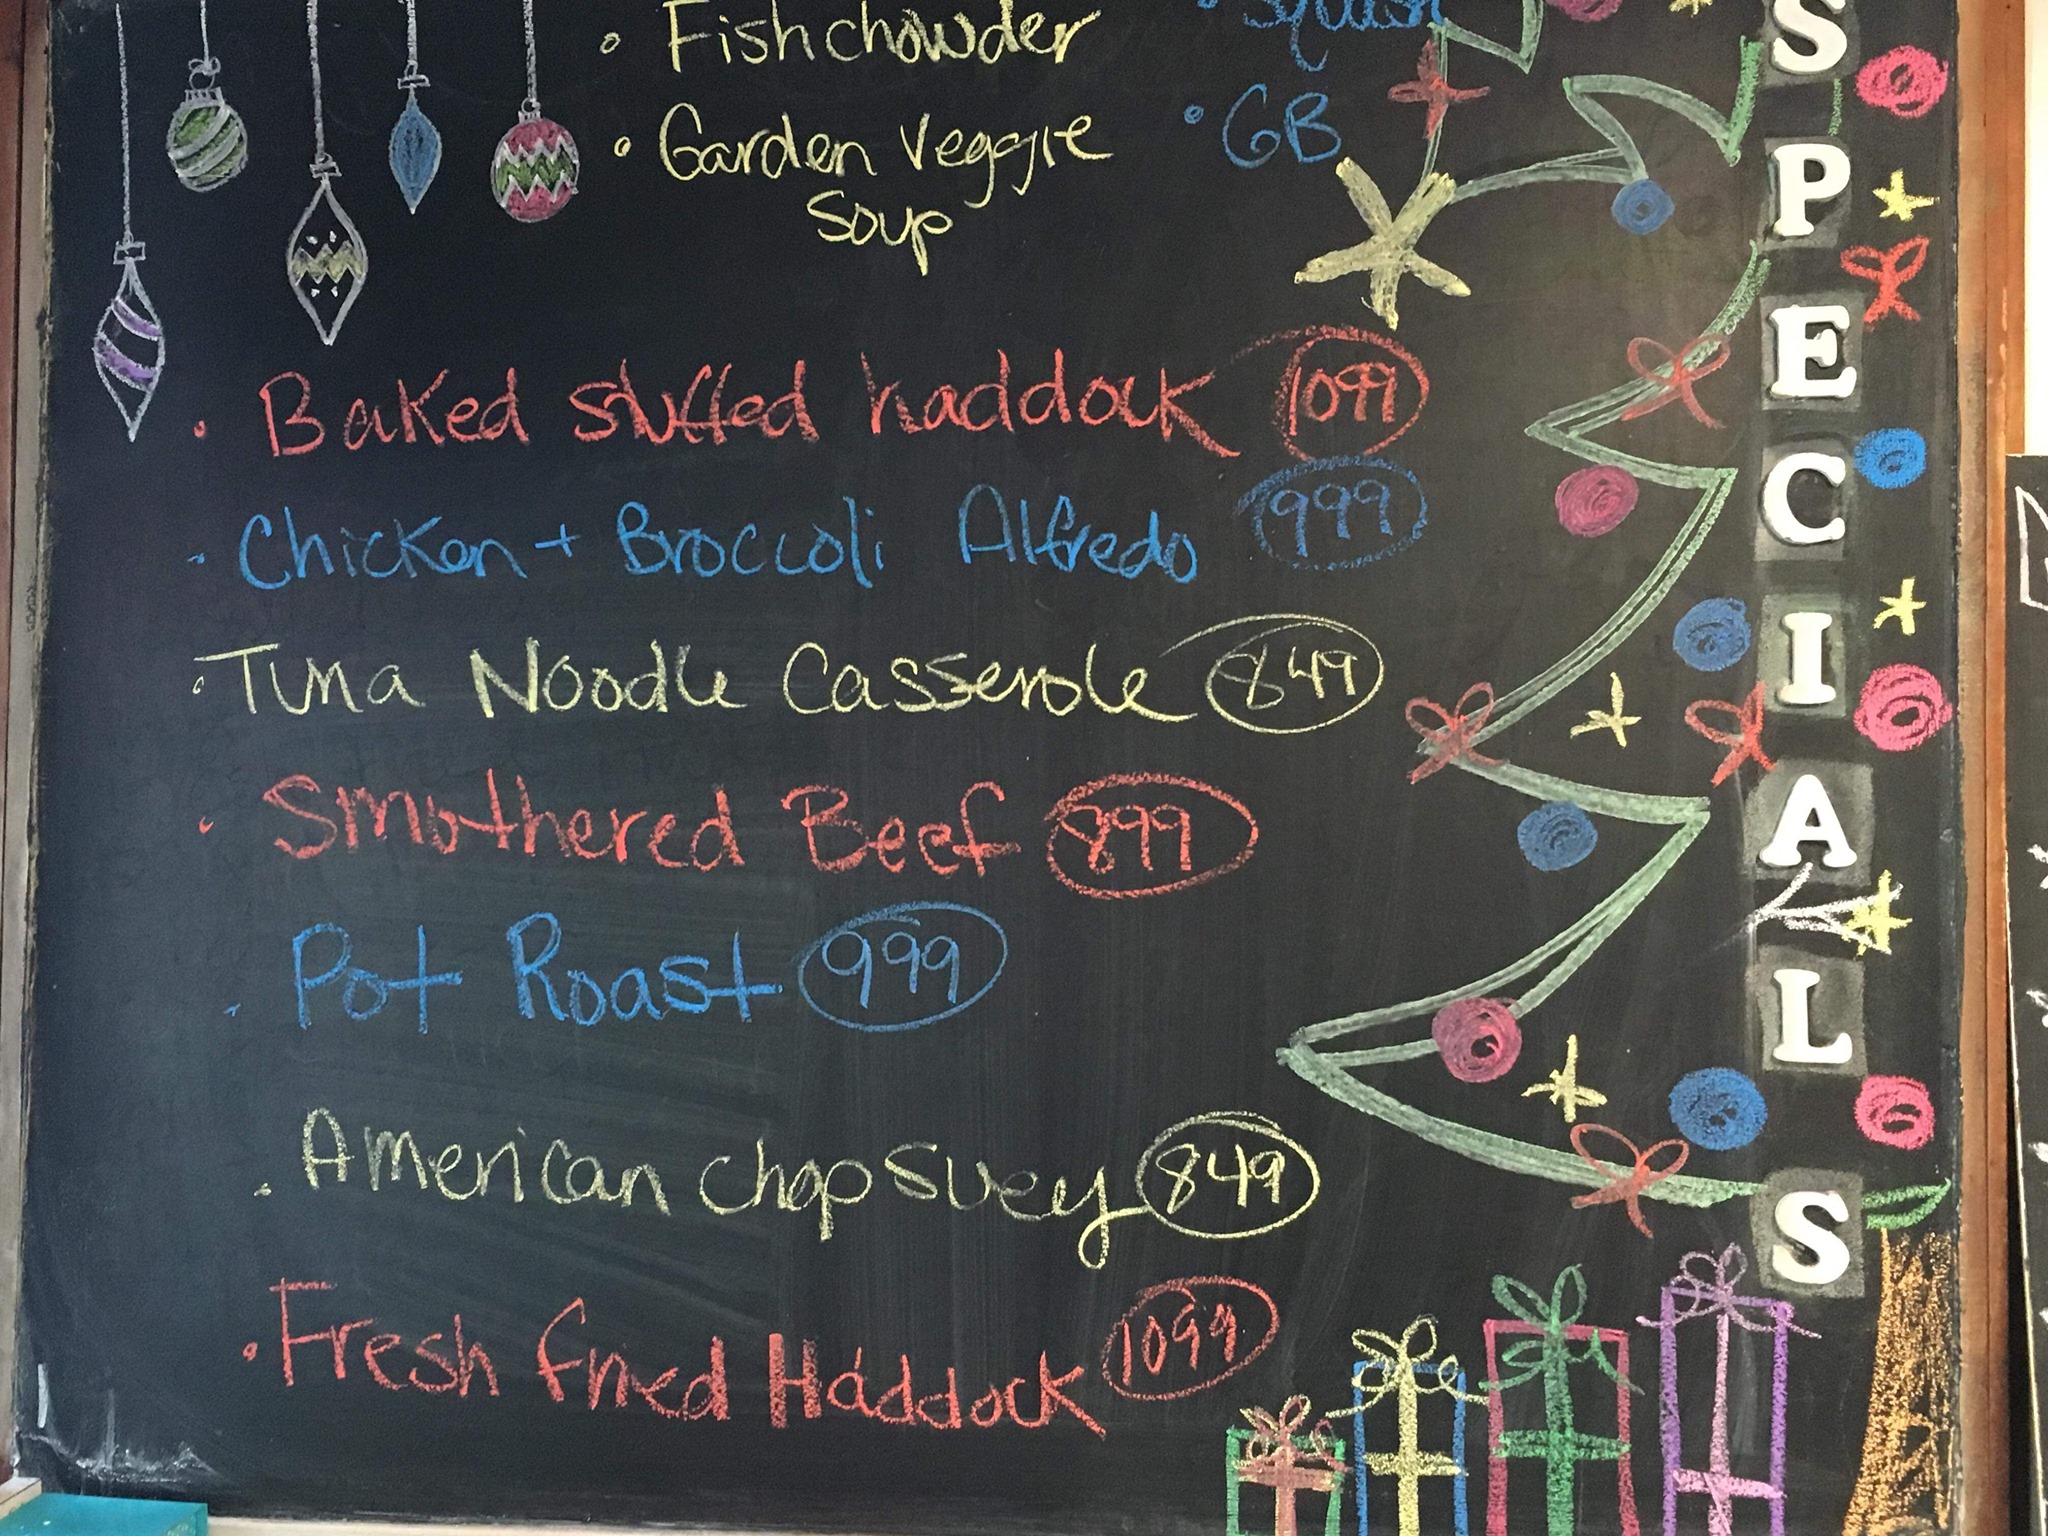 • Fish chowder
• Garden veggie
Soup
• Squash
• GB
• Baked stuffed haddock 1099
• Chicken + Broccoli Alfredo 999
• Tuna Noodle Casserole 849
• Smothered Beef 899
• Pot Roast 999
• American Chop Suey 849
• Fresh fried Haddock 1099
SPECIALS